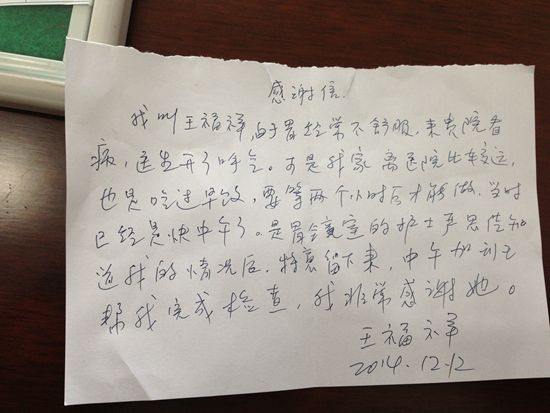 感谢信.
我叫王福祥由于胃经常不舒服,来贵院看
病,医生开了呼气。可是我家离医院比较远,
也是吃过早饭,要等两个小时后才能做,当时
已经是快中午了。是胃镜室的护士严思佳知
道我的情况后,特意留下来,中午加班
帮我完成检查,我非常感谢她。
王福祥
2014.12.12